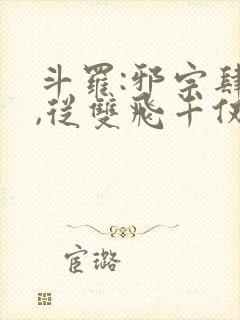 斗羅:邪宗肆
,從雙飛千仞
宦璐